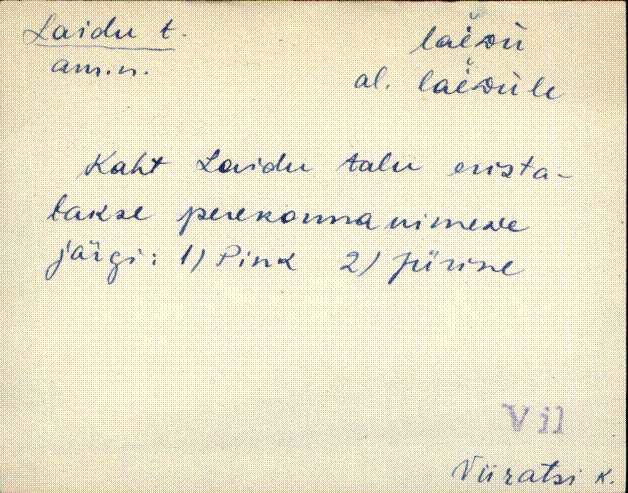 Laidu t.
am.n.
al.
Kaht Laidu talu erista-
takse perekonna nimede
järgi: 1) Pink 2) Jürine
Vil
Viiratsi k.